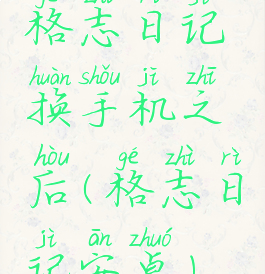 格志日记
huàn shǒu jī zhī
换手机之
hòu gé zhì rì
后(格志日
jì ān zhuó
记安卓)